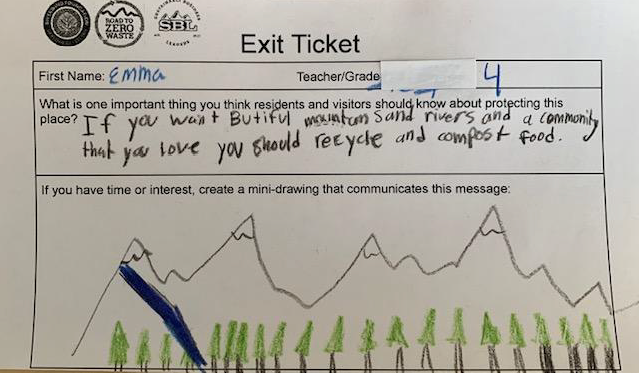 ROAD TO
ZERO
WASTE
SBL
LEADERS
Exit Ticket
First Name: Emma
Teacher/Grade 4
What is one important thing you think residents and visitors should know about protecting this
place? If you want Butiful mountans and rivers and a community
that you love you should recycle and compost food.
If you have time or interest, create a mini-drawing that communicates this message: